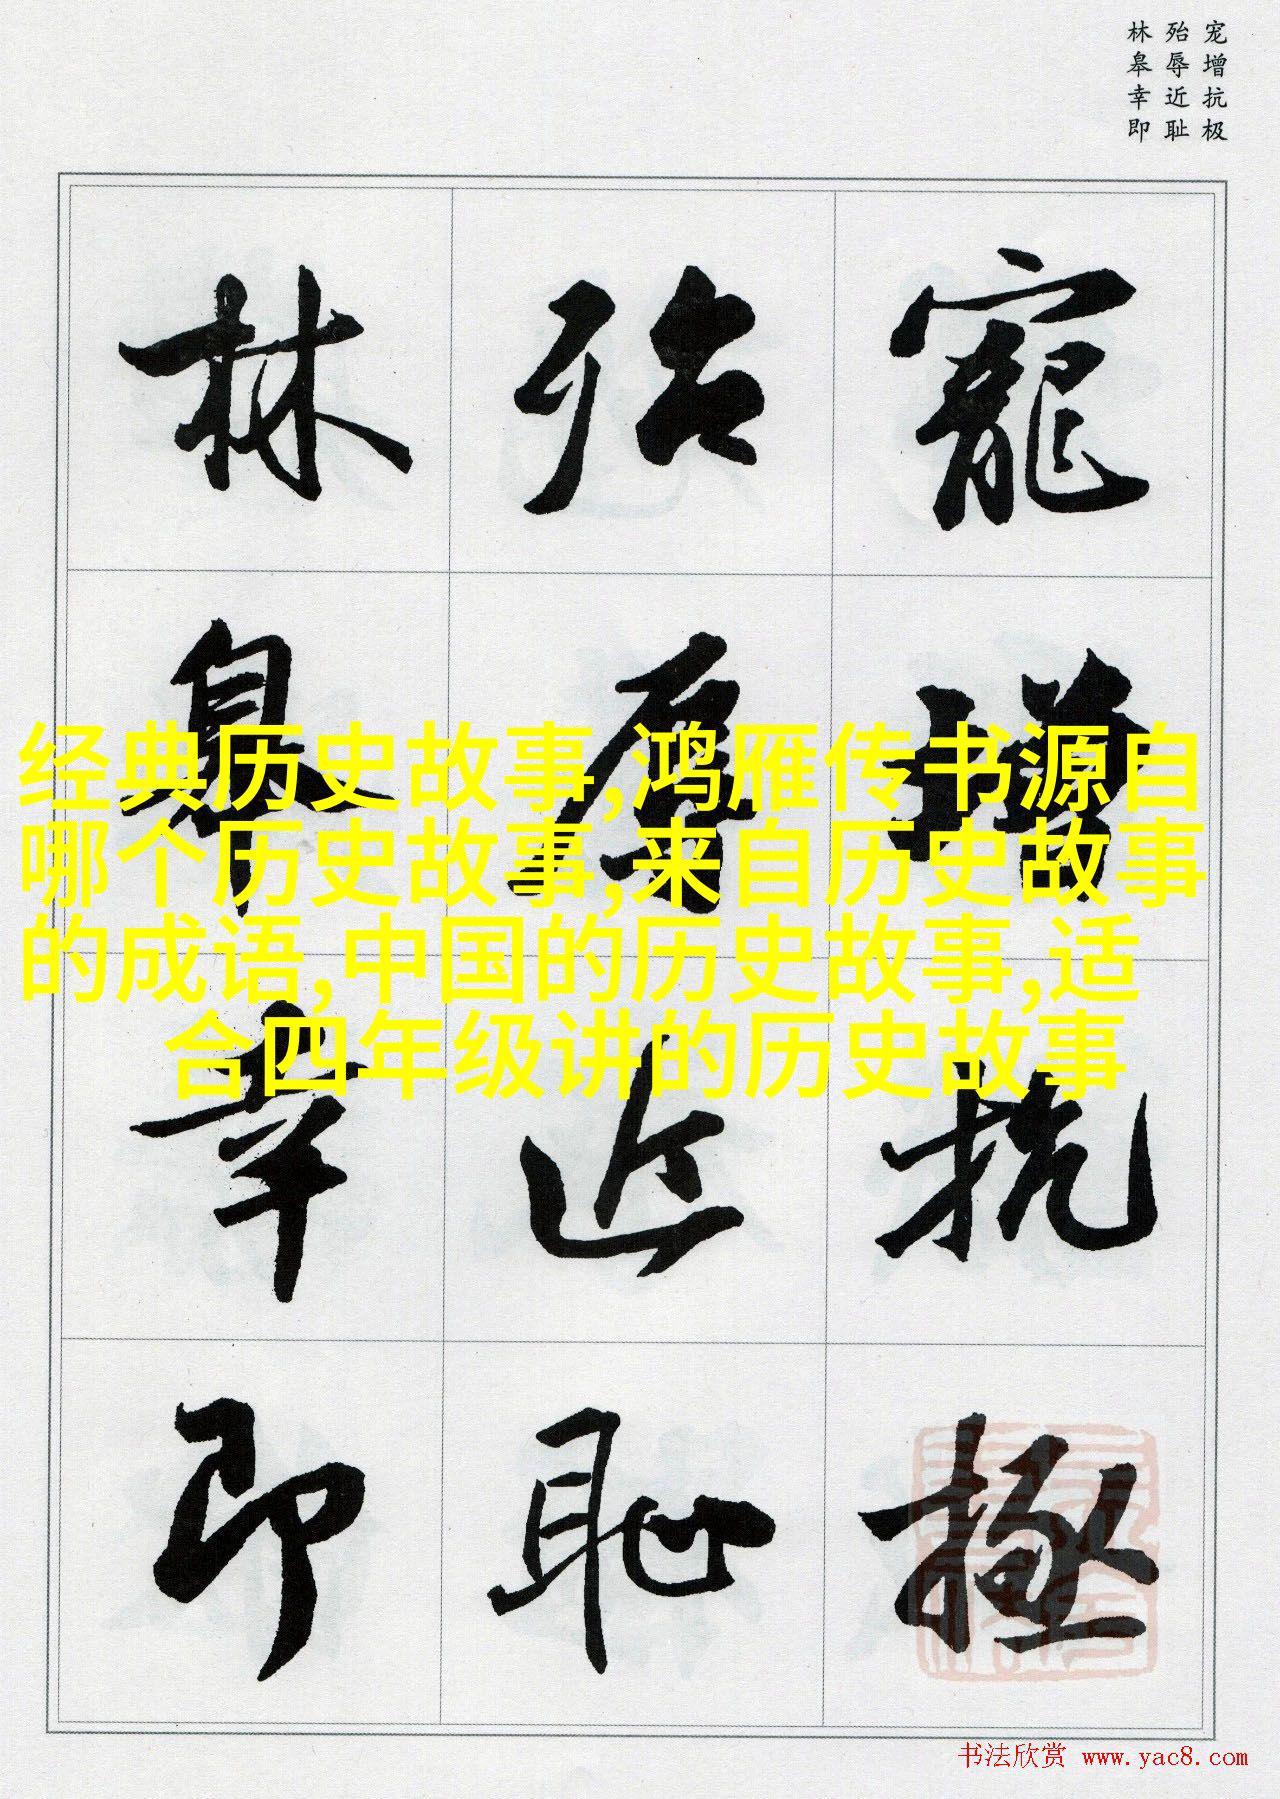 宠增抗极
殆辱近耻
林皋幸即
寵增抗極
殆辱近恥
林皋幸即
经典历史故事,鸿雁传书源自
哪个历史故事,来自历史故事
的成语,中国的历史故事,适
合四年级讲的历史故事
书法欣赏 www.yac8.com